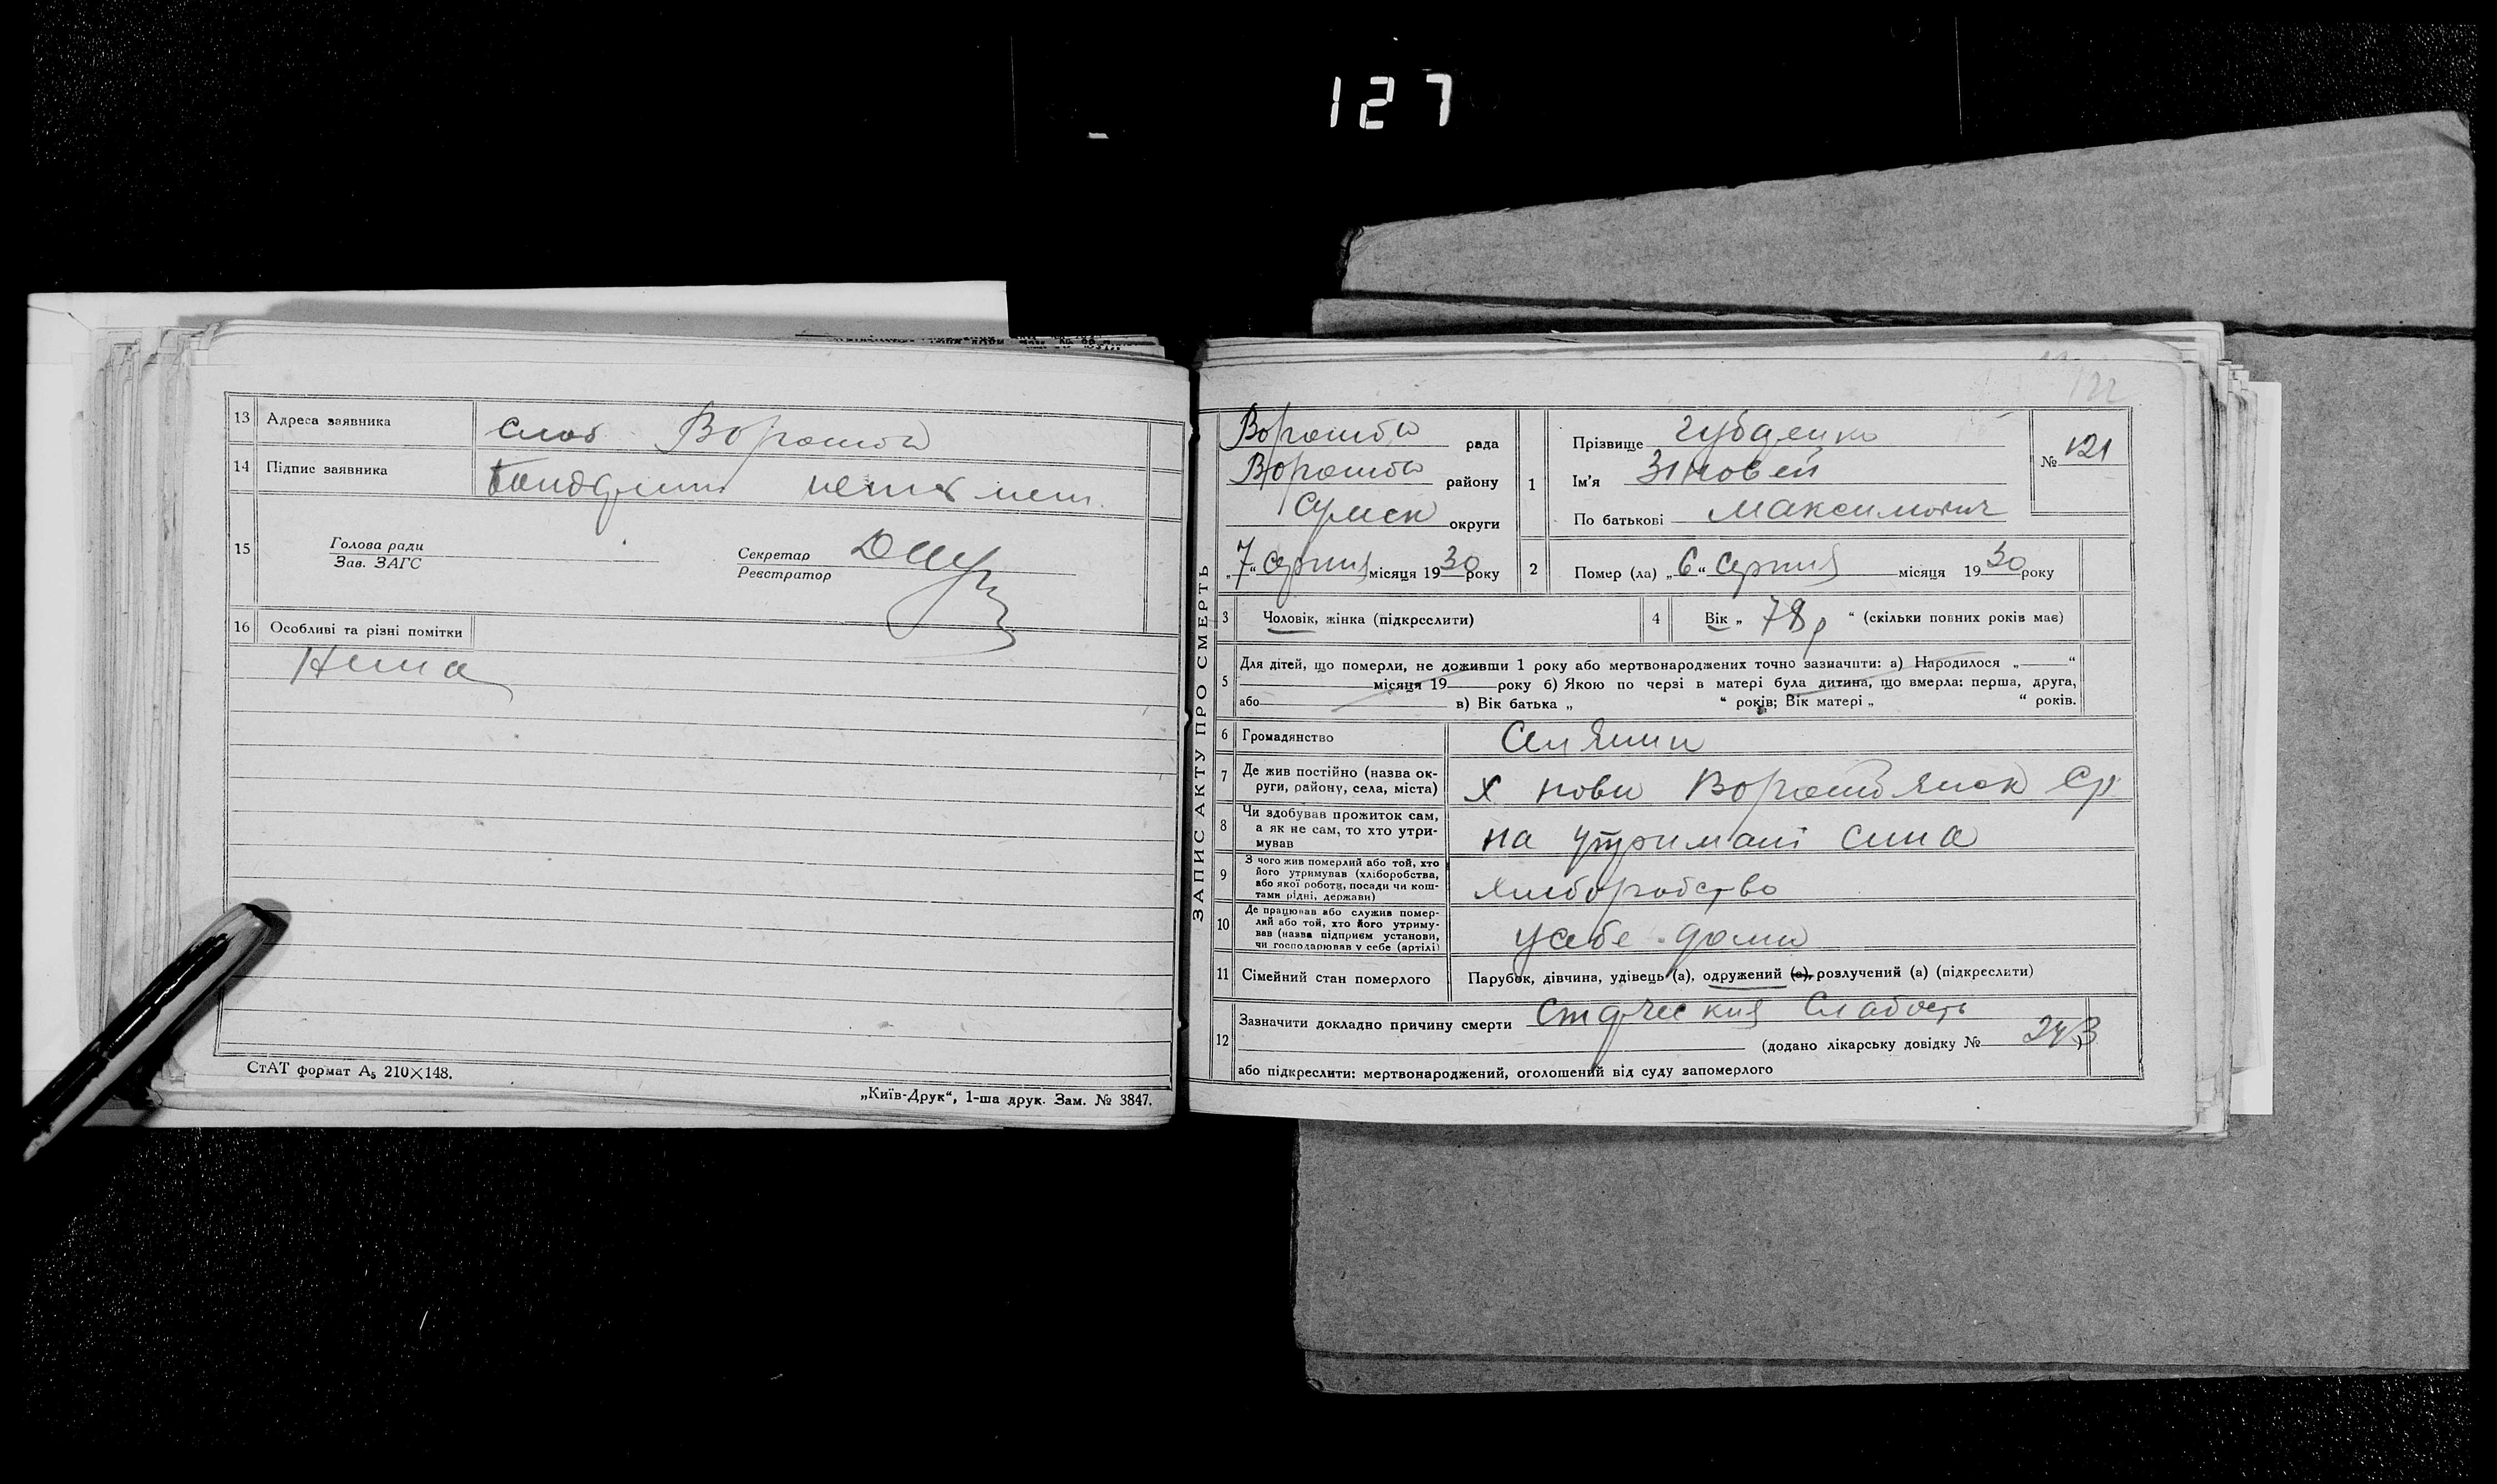 127
13 Адреса заявника Слоб. Ворожба
14 Підпис заявника
15 Голова ради
Зав. ЗАГС
Секретар
Реєстратор
16 Особливі та різні помітки
Нима
СтАТ формат А₅ 210×148.
„Київ-Друк“, 1-ша друк. Зам. № 3847.
122
ЗАПИС АКТУ ПРО СМЕРТЬ
Ворожба рада
Ворожба району
Сумск округи
„7“ Серпня місяця 1930 року
1 Прізвище Губденко
Ім'я Зіновей
По батькові Максимович
№ 121
2 Помер (ла) „6“ Серпня місяця 1930 року
3 Чоловік, жінка (підкреслити)
4 Вік „ 78 р “ (скільки повних років має)
5 Для дітей, що померли, не доживши 1 року або мертвонароджених точно зазначити: а) Народилося „ “
місяця 19 року б) Якою по черзі в матері була дитина, що вмерла: перша, друга,
або в) Вік батька „ “ років; Вік матері „ “ років.
6 Громадянство Селянин
7 Де жив постійно (назва ок-
руги, району, села, міста) х нови Ворожбянск Ср
8 Чи здобував прожиток сам,
а як не сам, то хто утри-
мував на утримані сина
9 З чого жив померлий або той, хто
його утримував (хліборобства,
або якої роботи, посади чи кош-
тами рідні, держави) хлиборобство
10 Де працював або служив помер-
лий або той, хто його утриму-
вав (назва підприєм установи,
чи господарював у себе (артілі) усебе дома
11 Сімейний стан померлого Парубок, дівчина, удівець (а), одружений (а), розлучений (а) (підкреслити)
12 Зазначити докладно причину смерти Слабость
(додано лікарську довідку № 243
або підкреслити: мертвонароджений, оголошений від суду запомерлого